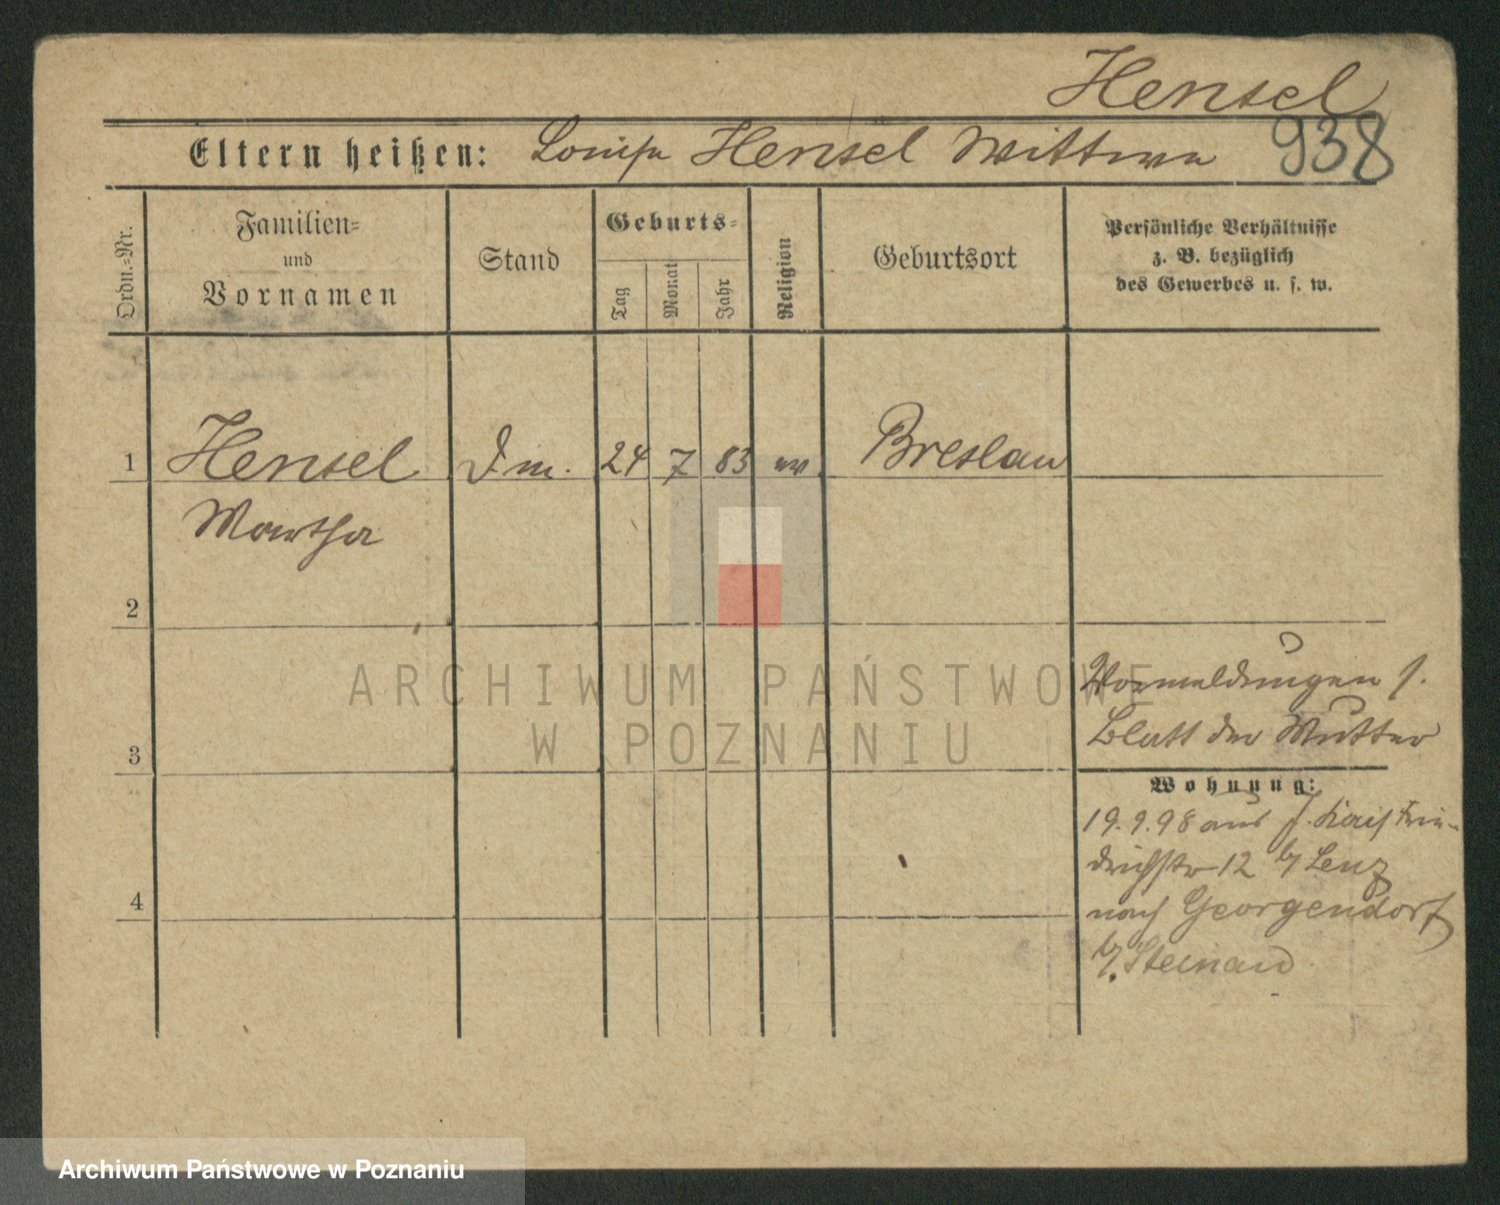 Hensel
938
Eltern heißen: Louise Hensel Wittwe
Ordn.-Nr.
Familien-
und
Vornamen
Stand
Geburts-
Tag
Monat
Jahr
Religion
Geburtsort
Persönliche Verhältnisse
z. B. bezüglich
des Gewerbes u. s. w.
1 Hensel D.m. 24 7 83 ev Breslau
Martha
2
3
4
Vormeldungen s.
Blatt der Mutter
Wohnung:
19.9.98 aus J. Kais Frie-
drichstr 12 b/ Lenz
nach Georgendorf
b/ Steinau
ARCHIWUM PAŃSTWOWE
W POZNANIU
Archiwum Państwowe w Poznaniu